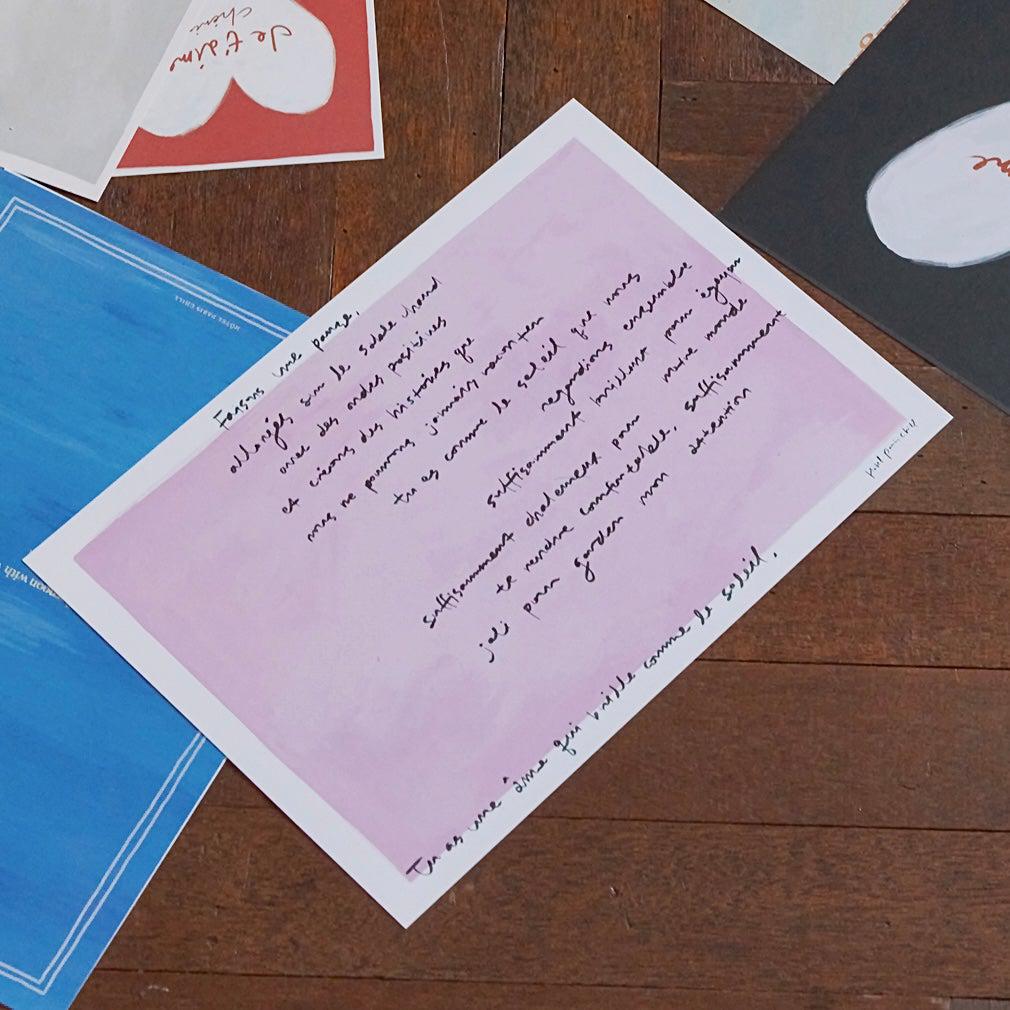 Faisons une pause,
allongés sur le sable chaud
avec des ondes positives
et créons des histoires que
nous ne pourrons jamais raconter
tu es comme le soleil que nous
regardions ensemble
suffisamment brillant pour égayer
notre monde
suffisamment chaleureux pour
te rendre confortable, suffisamment
joli pour garder mon attention
Tu as une âme qui brille comme le soleil.
hôtel paris chill
Je t'aime
chérie
HÔTEL PARIS CHILL
with
me